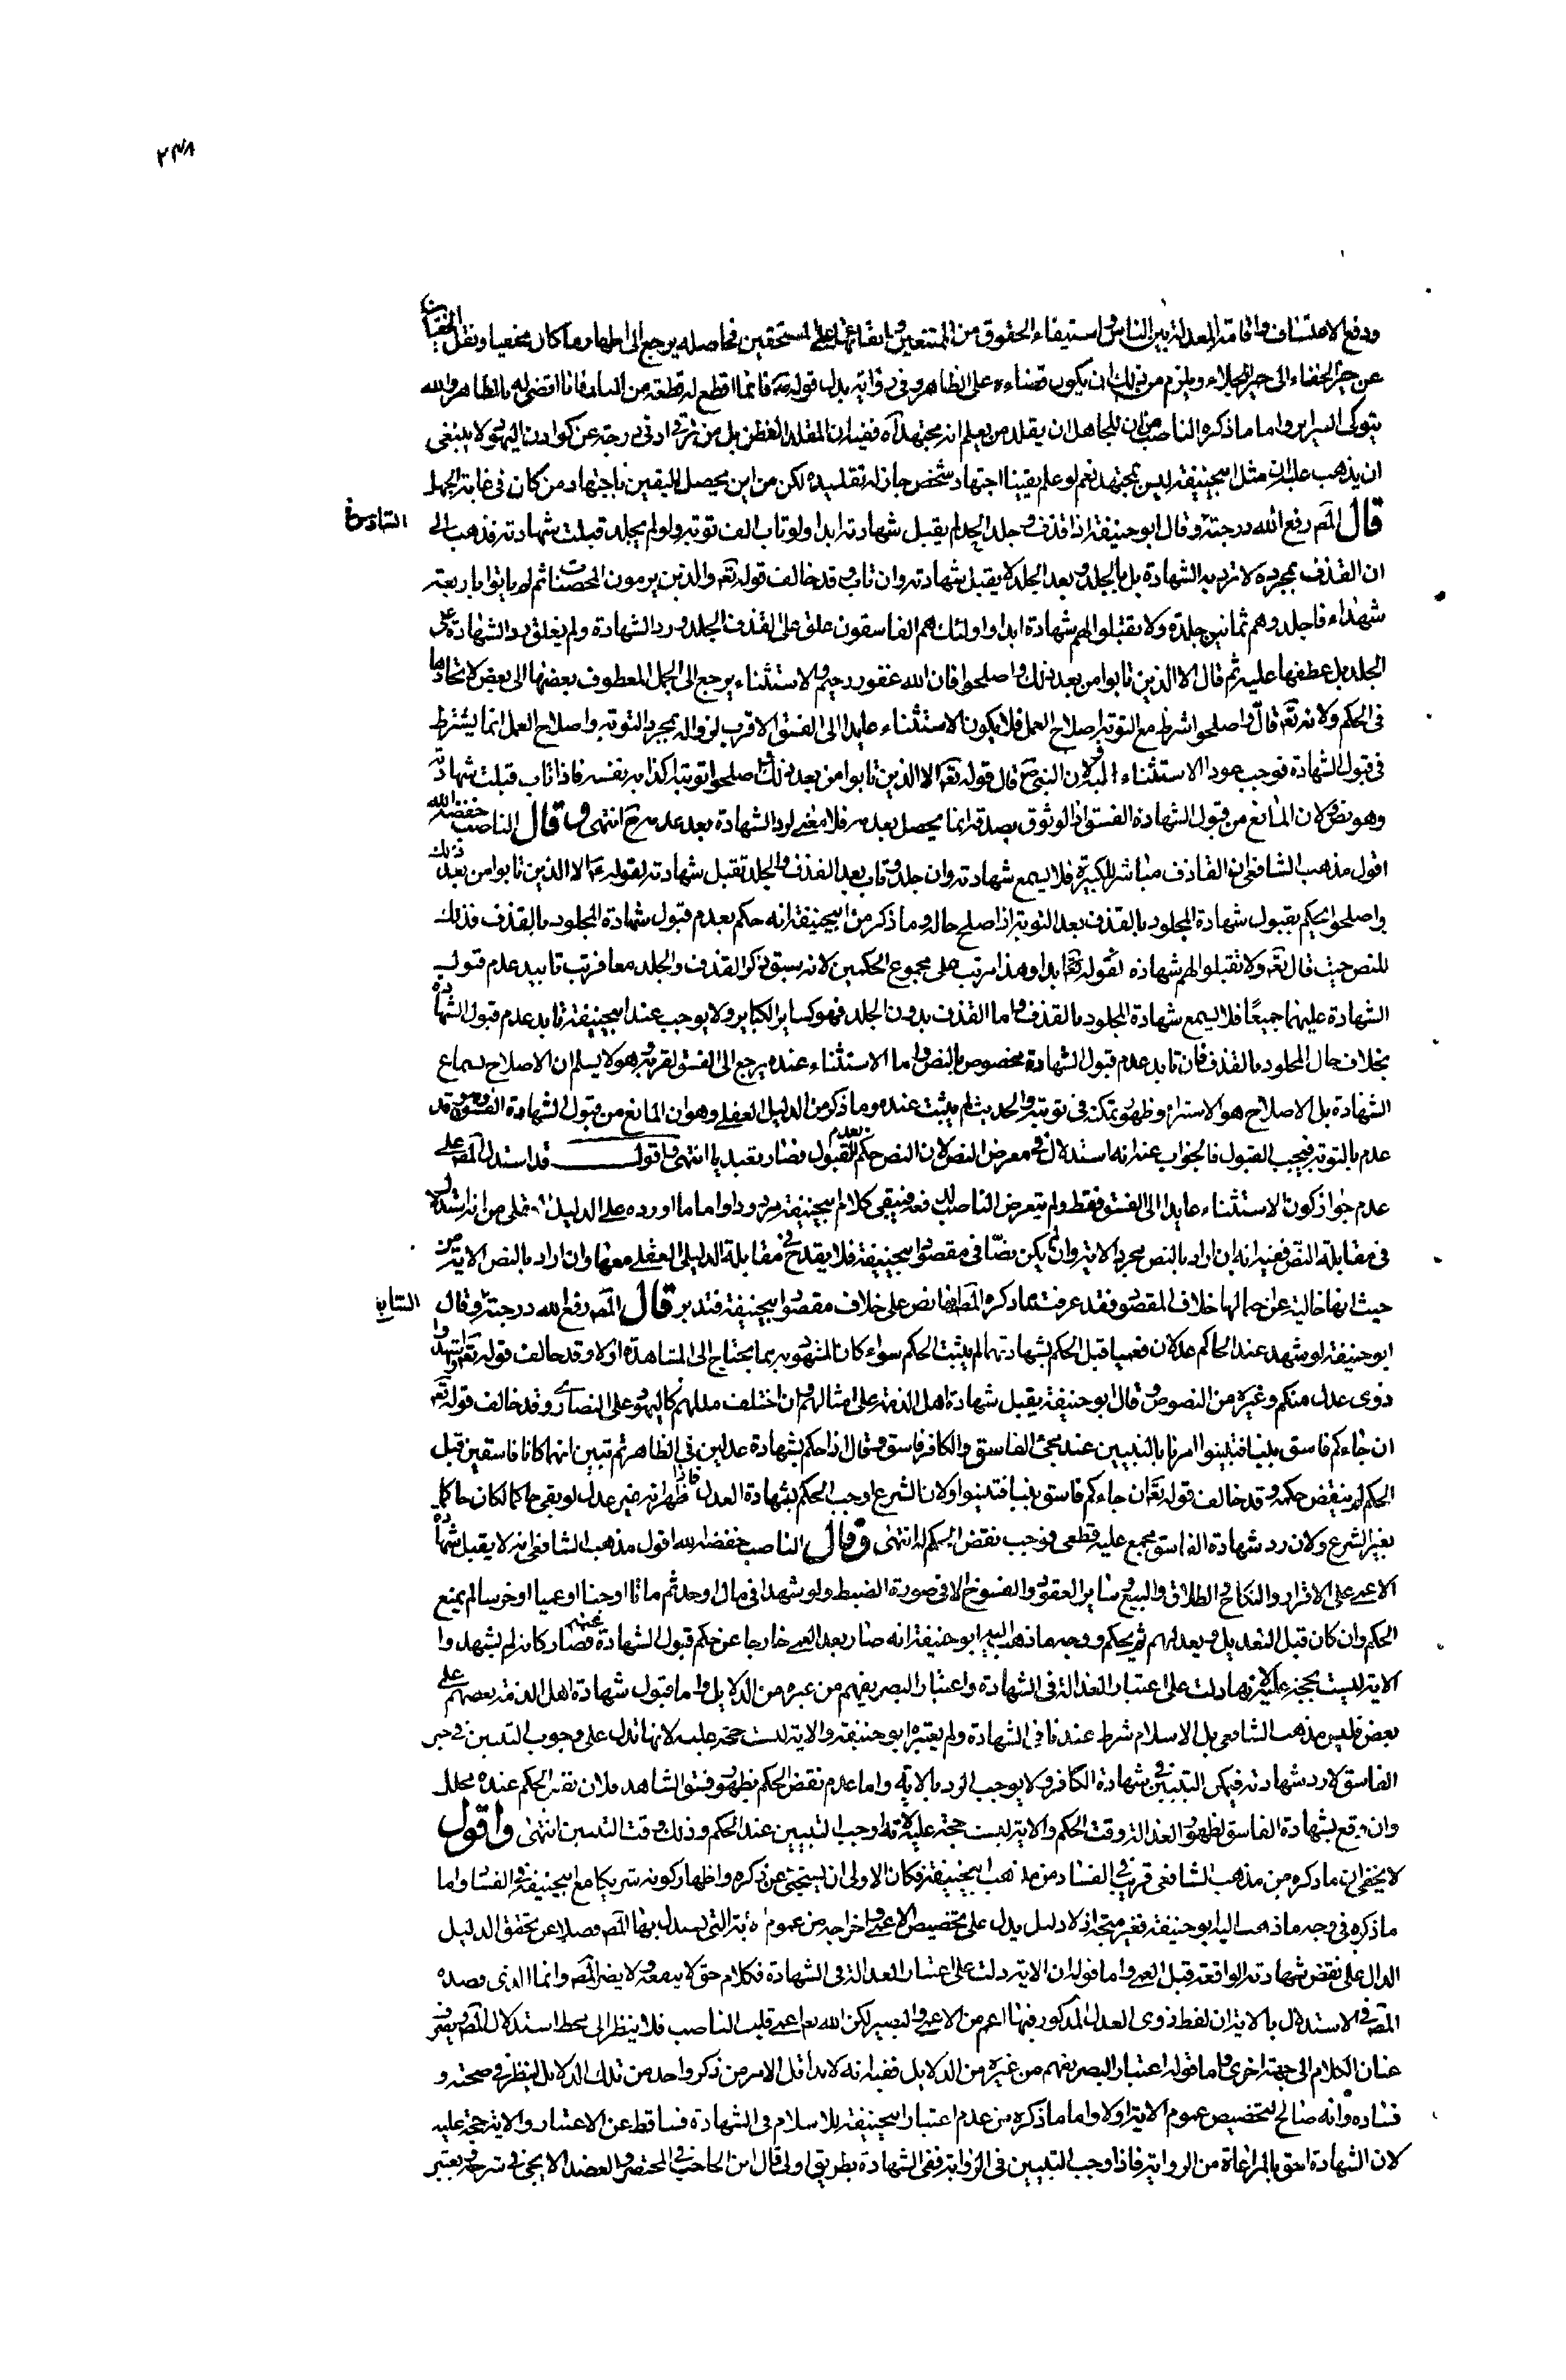 ٢٣٨
ودفع الاعتساف واقامة المعدلة بين الناس واستيفاء الحقوق من الممتنعين وابقائها على المستحقين فحاصله يرجع الى اظهار ما كان مخفيا ونقل الخفيات
عن حيز الخفاء الى حيز الجلاء ويلزم من ذلك ان يكون قضاءه على الظاهر وفى رواية بدل قوله ص فانما اقطع له قطعة من النار فانا اقضى له بالظاهر والله
يتولى السراير واما ما ذكره الناصب من ان للجاهل ان يقلد من يعلم انه مجتهد آه ففيه ان المقلد الفطن بل من ترقى ادنى درجة عن كوادن اليهود لا ينبغى
ان يذهب عليه ان مثل ابيحنيفة ليس بمجتهد نعم لو علم يقينا اجتهاد شخص جاز له تقليده لكن من اين يحصل اليقين باجتهاد من كان فى غاية الجهل
قال المص رفع الله درجته وقال ابو حنيفة اذا قذف وجلد الحد لم يقبل شهادته ابدا ولو تاب الف توبة ولو لم يجلد قبلت شهادته فذهب الى
السادس
ان القذف بمجرده لا ترد به الشهادة بل بالجلد وبعد الجلد لا يقبل شهادته وان تاب وقد خالف قوله تعه والذين يرمون المحصنات ثم لم ياتوا باربعة
شهداء فاجلدوهم ثمانين جلدة ولا تقبلوا لهم شهادة ابدا واولئك هم الفاسقون علق على القذف الجلد ورد الشهادة ولم يعلق رد الشهادة على
الجلد بل عطفها عليه ثم قال الا الذين تابوا من بعد ذلك واصلحوا فان الله غفور رحيم والاستثناء يرجع الى الجمل المعطوف بعضها الى بعض لاتحادها
فى الحكم ولانه تعه قال واصلحوا شرط مع التوبة اصلاح العمل فلا يكون الاستثناء عايدا الى الفسق الاقرب لزواله بمجرد التوبة واصلاح العمل انما يشترط
فى قبول الشهادة فوجب عود الاستثناء اليه ولان النبى ص قال قوله تعه الا الذين تابوا من بعد ذلك واصلحوا توبته اكذابه نفسه فاذا تاب قبلت شهادته
وهو نص ولان المانع من قبول الشهادة الفسق اذ الوثوق بصدقه انما يحصل بعدمه فلا معنى لرد الشهادة بعد عدمه انتهى وقال الناصب خفضه الله
اقول مذهب الشافعى ان القاذف مباشر للكبيرة فلا يسمع شهادته وان جلد وتاب بعد القذف والجلد تقبل شهادته لقوله تعه الا الذين تابوا من بعد ذلك
واصلحوا فيحكم بقبول شهادة المجلود بالقذف بعد التوبة اذا صلح حاله وما ذكر من ابيحنيفة انه حكم بعدم قبول شهادة المجلود بالقذف فذلك
للنص حيث قال تعه ولا تقبلوا لهم شهادة لقوله تعه ابدا وهذا مرتب على مجموع الحكمين لانه سبق ذكر القذف والجلد معا فرتب تابيد عدم قبول
الشهادة عليهما جميعًا فلا يسمع شهادة المجلود بالقذف واما القذف بدون الجلد فهو كساير الكباير ولا يوجب عند ابيحنيفة تابد عدم قبول الشهادة
بخلاف حال المجلود بالقذف فان تابد عدم قبول الشهادة مخصوص بالنص واما الاستثناء عنده يرجع الى الفسق لقربه وهو لا يسلم ان الاصلاح بسماع
الشهادة بل الاصلاح هو الاستمرار وظهور تمكنه فى توبته والحديث لم يثبت عنده وما ذكر من الدليل العقلى وهو ان المانع من قبول الشهادة الفسق وهو قد
عدم بالتوبة فيجب القبول فالجواب عنه انه استدلال فى معرض النص لان النص حكم بعدم القبول فصار تعبديا انتهى واقول قد استدل المص على
عدم جواز كون الاستثناء عايدا الى الفسق فقط ولم يتعرض الناصب لدفعه فبقى كلام ابيحنيفة مردودا واما ما اورده على الدليل العقلى من انه استدلال
فى مقابلة النص ففيه انه ان اراد بالنص مجرد الاية وان لم يكن نصّا فى مقصود ابيحنيفة فلا يقدح فى مقابلة الدليل العقلى معها وان اراد بالنص الاية من
حيث انها خالية عن احتمالها خلاف المقصود فقد عرفت مما ذكره المص انها نص على خلاف مقصود ابيحنيفة فتدبر قال المص رفع الله درجته وقال
السابع
ابو حنيفة لو شهد عند الحاكم عدلان فعميا قبل الحكم بشهادتهما لم يثبت الحكم سواء كان المشهود به مما يحتاج الى المشاهدة اولا وقد خالف قوله تعه واشهدوا
ذوى عدل منكم وغيره من النصوص وقال ابو حنيفة يقبل شهادة اهل الذمة على امثالهم وان اختلف مللهم كاليهود على النصارى وقد خالف قوله تعه
ان جاءكم فاسق بنبا فتبينوا امرنا بالتبيين عند مجئ الفاسق والكافر فاسق وقال اذا حكم بشهادة عدلين فى الظاهر ثم تبين انهما كانا فاسقين قبل
الحكم لم ينقض حكمه وقد خالف قوله تعه ان جاءكم فاسق بنبا فتبينوا ولان الشرع اوجب الحكم بشهادة العدل فاذا ظهر انه غير عدل لو بقى حاكما لكان حاكما
بغير الشرع ولان رد شهادة الفاسق مجمع عليه قطعى فوجب نقض الحكم له انتهى وقال الناصب خفضه الله اقول مذهب الشافعى انه لا يقبل شهادة
الاعمى على الاقرار والنكاح والطلاق والبيع وساير العقود والفسوخ الا فى صورة الضبط ولو شهدا فى مال او حد ثم ماتا او جنا او عميا او خرسا لم يمنع
الحكم وان كان قبل التعديل ويعدلهم ثم يحكم ووجه ما ذهب اليه ابو حنيفة انه صار بعد العمى خارجا عن حكم قبول الشهادة عنهم فصار كانه لم يشهد وا
الاية ليست بحجة عليه لانها دلت على اعتبار العدالة فى الشهادة واعتبار البصر يفهم من غيره من الدلايل واما قبول شهادة اهل الذمة بعضهم على
بعض فليس مذهب الشافعى بل الاسلام شرط عندنا فى الشهادة ولم يعتبره ابو حنيفة والاية ليست حجة عليه لانها تدل على وجوب التبين فى خبر
الفاسق لا رد شهادته فيمكن التبيين فى شهادة الكافر ولا يوجب الرد بالاية واما عدم نقض الحكم بظهور فسق الشاهد فلان نفس الحكم عنده محلل
وان وقع بشهادة الفاسق لظهور العدالة وقت الحكم والاية ليست حجة عليه لانه اوجب التبيين عند الحكم وذلك وقت التبيين انتهى واقول
لا يخفى ان ما ذكره من مذهب الشافعى قريب فى الفساد من مذهب ابيحنيفة فكان الاولى ان يستحى عن ذكره واظهار كونه شريكا مع ابيحنيفة فى الفساد واما
ما ذكره فى وجه ما ذهب اليه ابو حنيفة فغير متجه اذ لا دليل يدل على تخصيص الاعمى واخراجه من عموم الاية التى استدل بها المص فضلا عن تحقق الدليل
الدال على نقض شهادته الواقعة قبل العمى واما قوله ان الاية دلت على اعتبار العدالة فى الشهادة فكلام حق لا ينفعه ولا يضر المص وانما الذى قصده
المص فى الاستدلال بالاية ان لفظ ذوى العدل المذكور فيها اعم من الاعمى والبصير لكن الله تعه اعمى قلب الناصب فلا ينظر الى محط استدلال المص ويصرف
عنان الكلام الى جهة اخرى واما قوله اعتبار البصر يفهم من غيره من الدلايل ففيه انه لا بد اقل الامر من ذكر واحد من تلك الدلايل لينظر فى صحته و
فساده وانه صالح لتخصيص عموم الاية اولا واما ما ذكره من عدم اعتبار ابيحنيفة للاسلام فى الشهادة فساقط عن الاعتبار والاية حجة عليه
لان الشهادة احق بالمراعاة من الرواية فاذا وجب التبيين فى الرواية ففى الشهادة بطريق اولى قال ابن الحاجب فى المختصر والعضد الايجى فى شرحه يعتبر